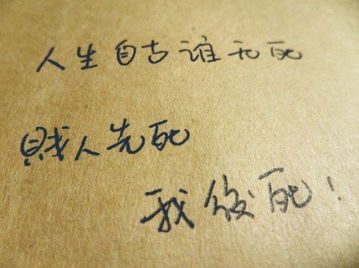 人生自古谁无死
贱人先死
我后死!